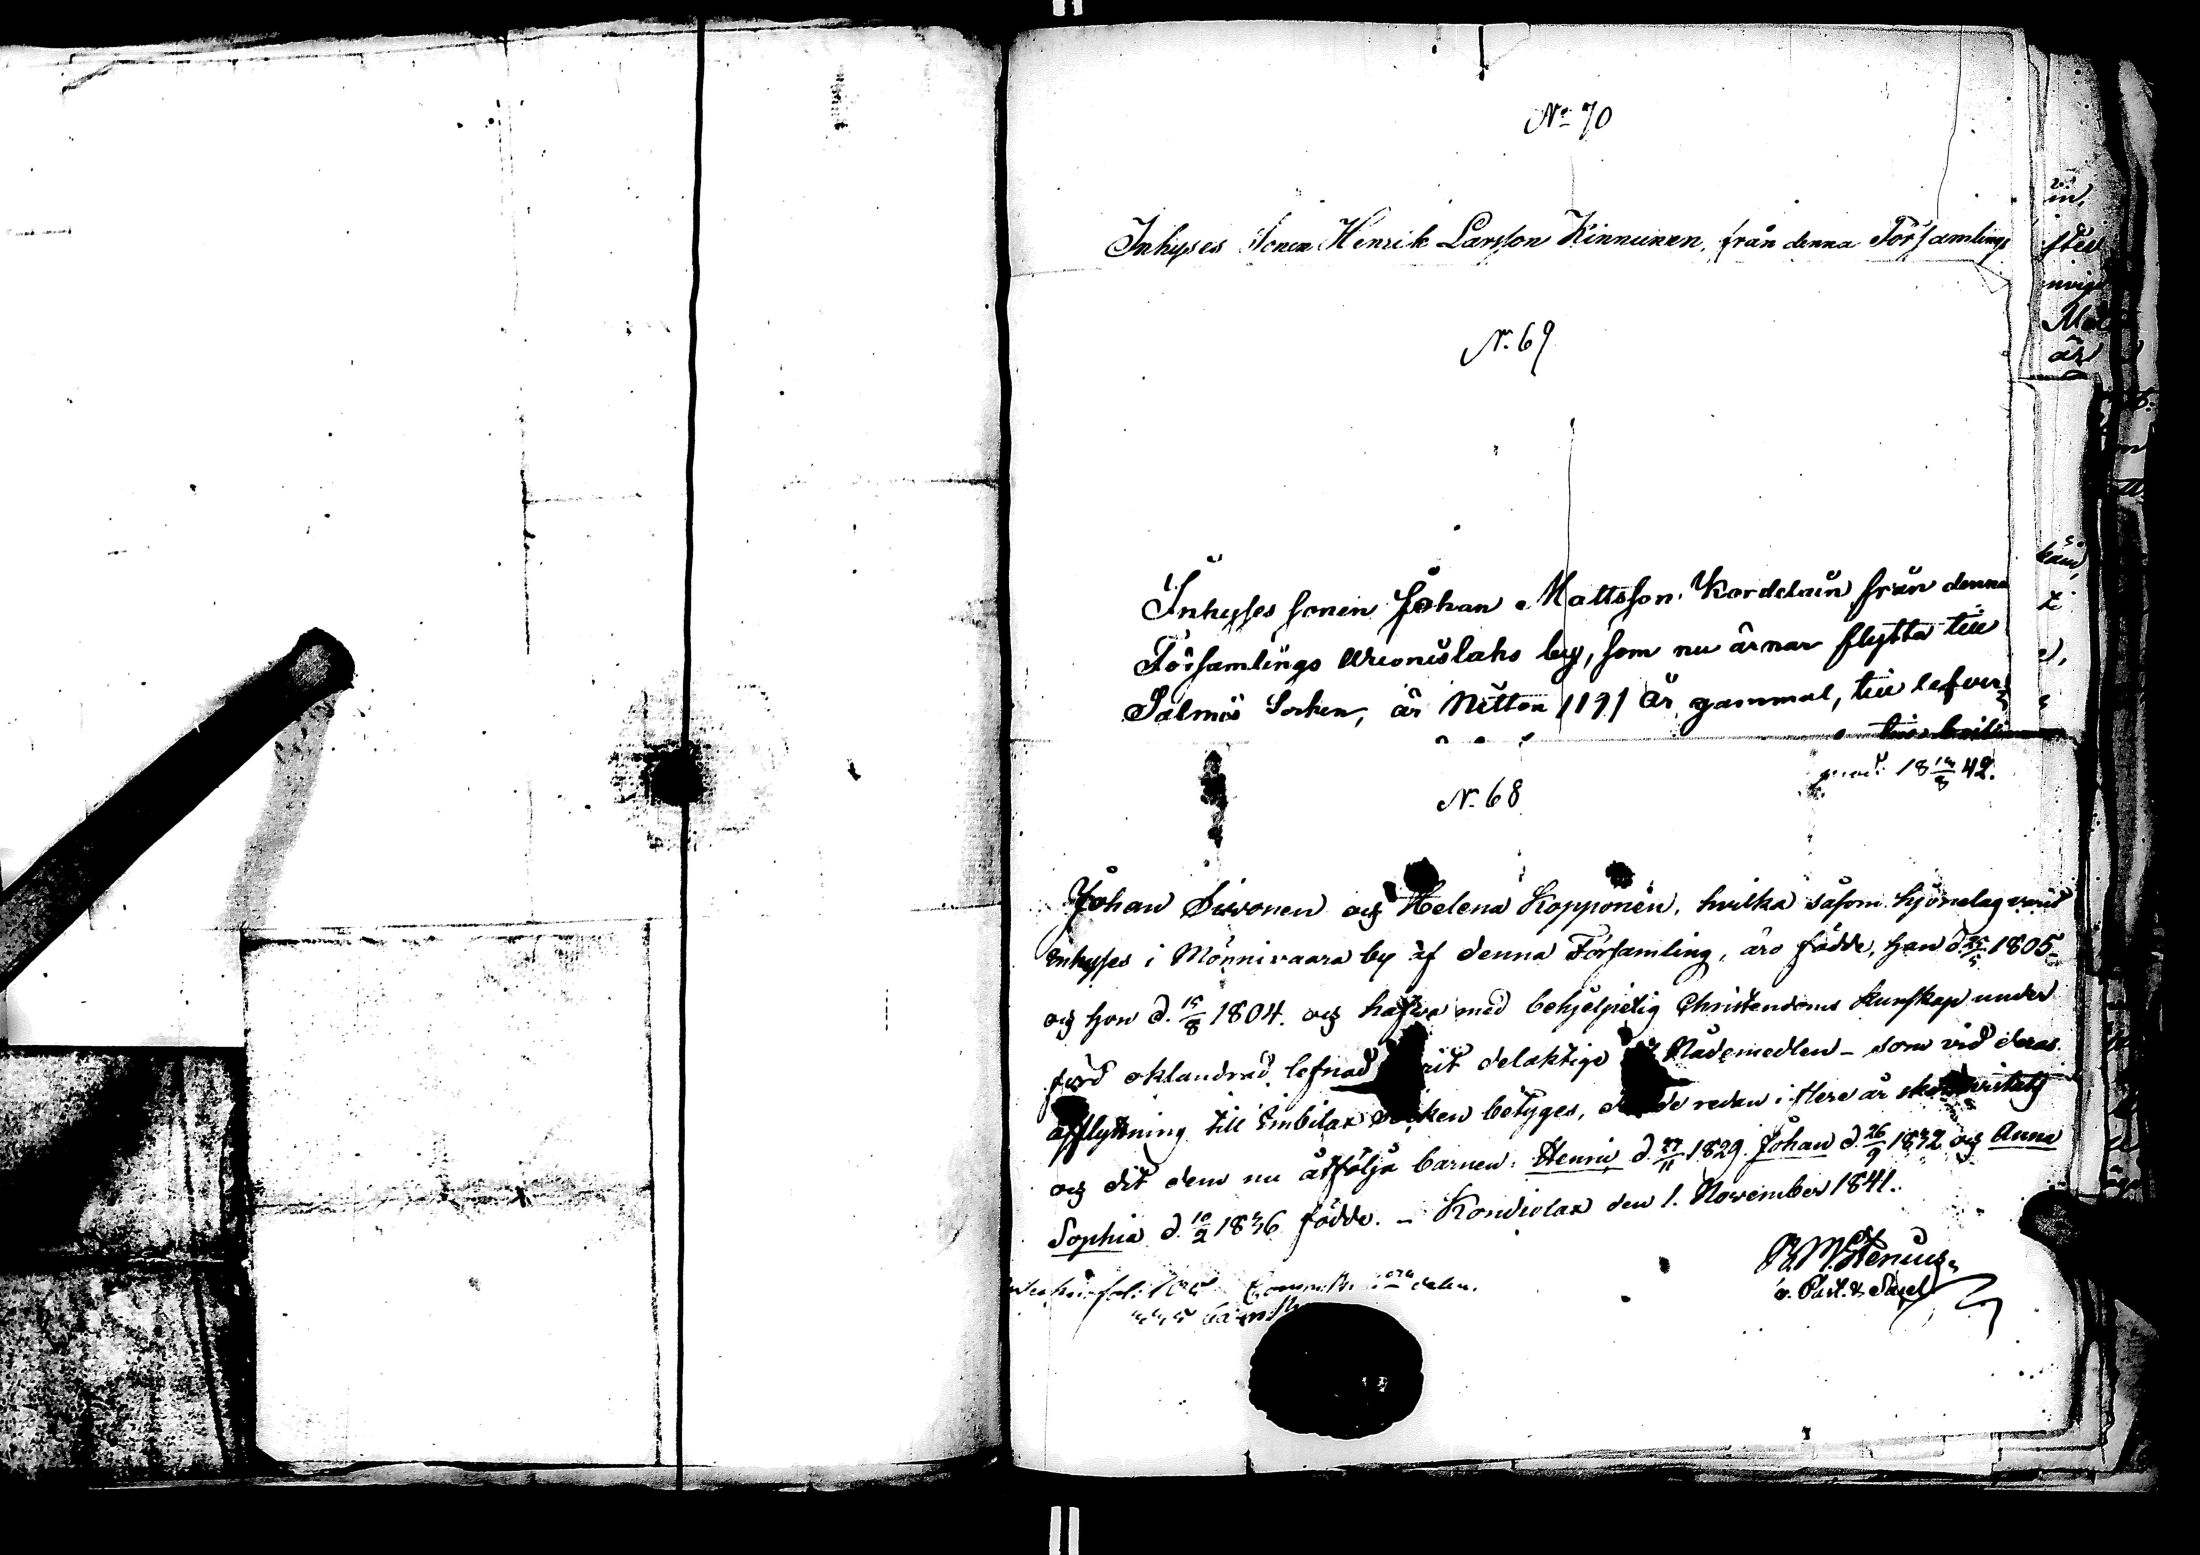 No 70
Inhyses Sonen Henrik Larsson Kinnunen, från denna Församlings
N. 69
Inhyses sonen Johan Mattsson Kordelain från denna
Församlings by, som nu ärnar flytta till
Salmis Socken, är Nitton /19/ år gammal, till lefver=
18 42.
N. 68
Johan Sivonen och Helena Kopponen, hvilka såsom hjonelag varit
Inhyses i Mönnivaara by af denna Församling, äro födde, han d. 1805
och hon d. 15/8 1804. och hafva med behjelpelig Christendoms kunskap under
förd oklandrad lefnad delaktige Nådemedlen - som vid deras
afflyttning till Imbilax Socken betyges, redan i flere år
och dit dem nu åtfölja barnen: Henric d. 27/11 1829. Johan d. 26/9 1832 och Anna
Sophia d. 10/2 1836 födde. - Kondiolax den 1. November 1841.
Stenius
v. Past. &
fol:
in,
ster
är